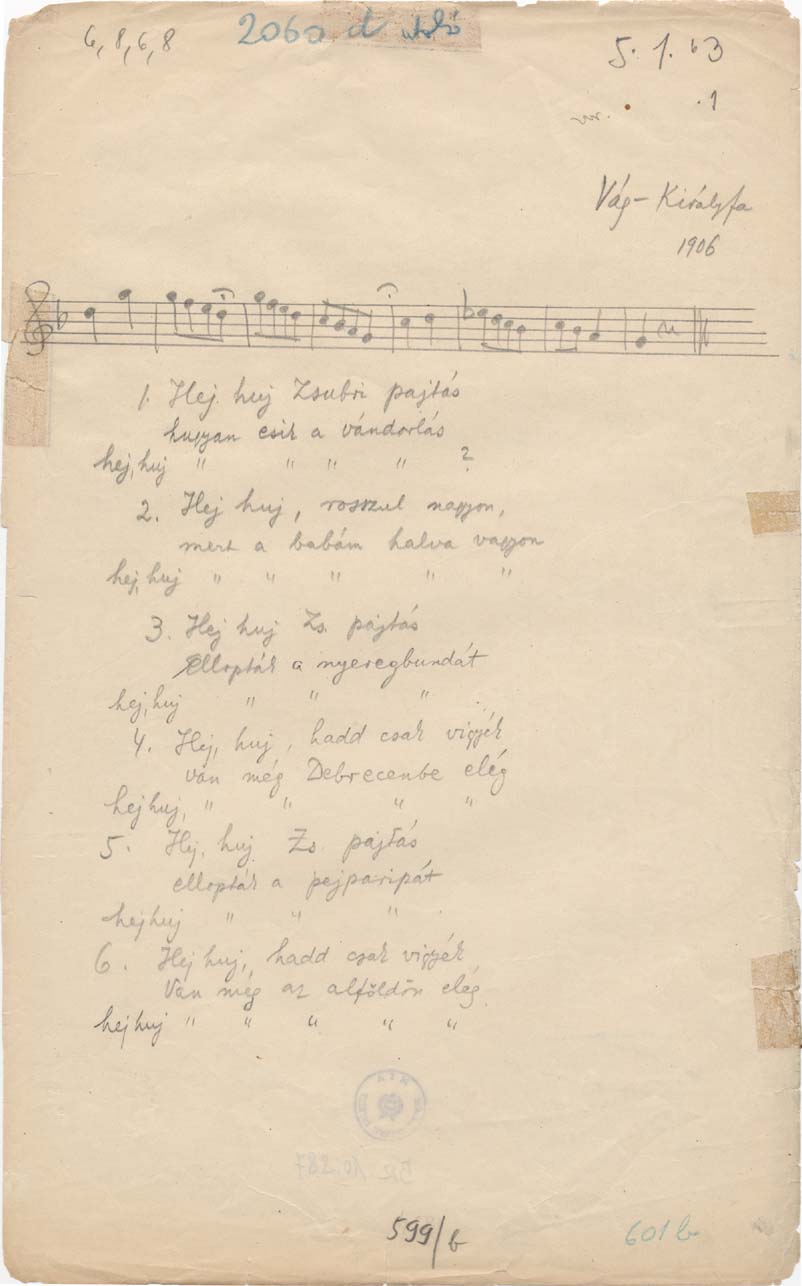 6, 8, 6, 8
206a d utolsó
5. 1. 63
vr. .1
Vág-Királyfa
1906
1. Hej huj Zsubri pajtás
hugyan esik a vándorlás
hej, huj " " " " ?
2. Hej huj, rosszul nagyon,
mert a babám halva vagyon
hej, huj " " " " "
3. Hej huj Zs. pajtás
Ellopták a nyeregbundát
hej, huj " " "
4. Hej, huj, hadd csak vigyék
van még Debrecenbe elég
hej huj, " " " "
5. Hej, huj Zs. pajtás
ellopták a pejparipát
hej huj " " "
6. Hej huj, hadd csak vigyék
Van még az alföldön elég.
hej huj " " " " "
599/b
601 b